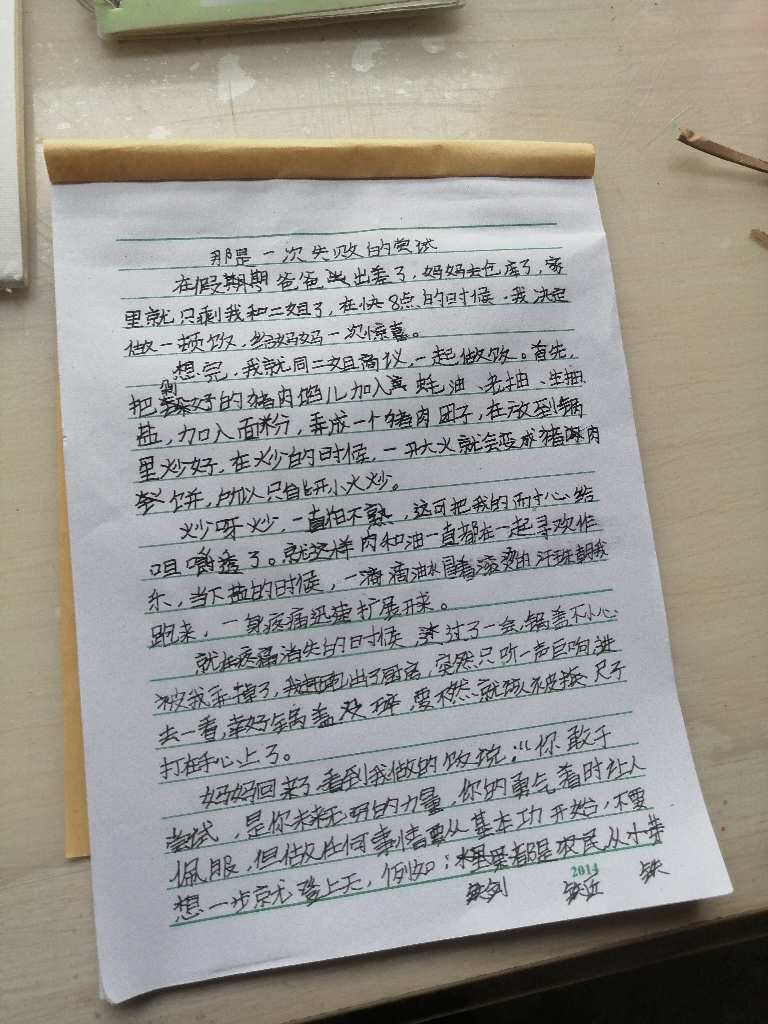 那是一次失败的尝试
在假期期爸爸出差了，妈妈去仓库了，家
里就只剩我和二姐了，在快8点的时候，我决定
做一顿饭，给妈妈一次惊喜。
想完，我就同二姐商议，一起做饭。首先，
把剁好的猪肉馅儿加入蚝油、老抽、生抽
盐，加入面粉，弄成一个猪肉团子，在放到锅
里炒好，在炒的时候，一开大火就会变成猪肉
饼，所以只能开小火炒。
炒呀炒，一直怕不熟，这可把我的耐心给
咀嚼透了。就这样肉和油一直都在一起寻欢作
乐，当下盐的时候，一滴滴油冒着滚烫的汗珠朝我
跑来，一身疼痛迅速扩展开来。
就在疼痛消失的时候，过了一会，锅盖不小心
被我弄掉了，我出了厨房，突然只听一声巨响，进
去一看，幸好锅盖没碎，要不然，就被板尺子
打在手心上了。
妈妈回来了，看到我做的饭，说：“你敢于
尝试，是你未来无穷的力量，你的勇气着时让人
佩服，但做任何事情要从基本功开始，不要
想一步就登上天，例如：都是农民从小
2014